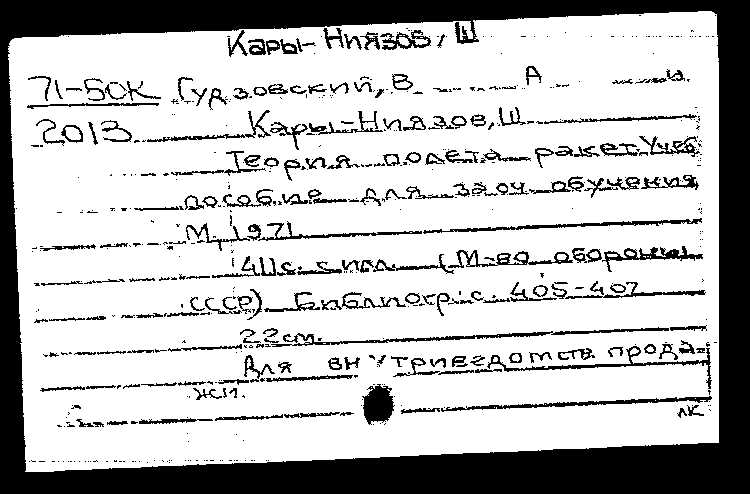 Кары-Ниязов, Ш
71-50К Гудзовский, В А и
2013 Кары-Ниязов, Ш
Теория полета ракет. Учеб
пособие для заоч. обучения
М, 1971
411с. с илл. (М-во обороны
СССР) Библиогр: с. 405-407
22см.
Для внутриведомств. прода-
жи.
ЛК